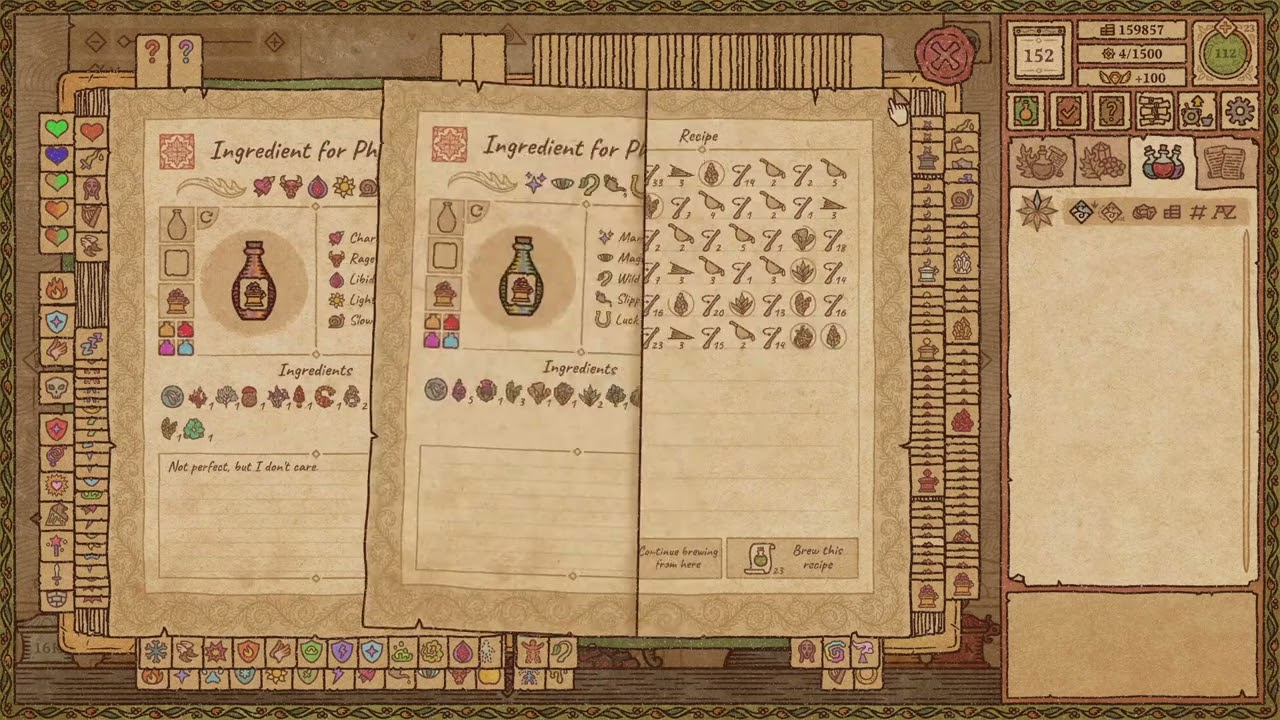 159857
152
4/1500
+100
112
23
Recipe
Ingredient for Ph
Ingredient for
33 3 14 2 2 5
7 4 1 2 1 3
2 2 2 5 1 18
7 3 3 1 3 14
16 20 13 16
23 3 15 2 14
Char
Rage
Libid
Light
Slow
Mag
Wild
Slipp
Luck
Ingredients
Ingredients
1 1 1 1 1 1 2
1 1
5 1 3 1 1 2 1
Not perfect, but I don't care.
Continue brewing
from here
23
Brew this
recipe
# AZ